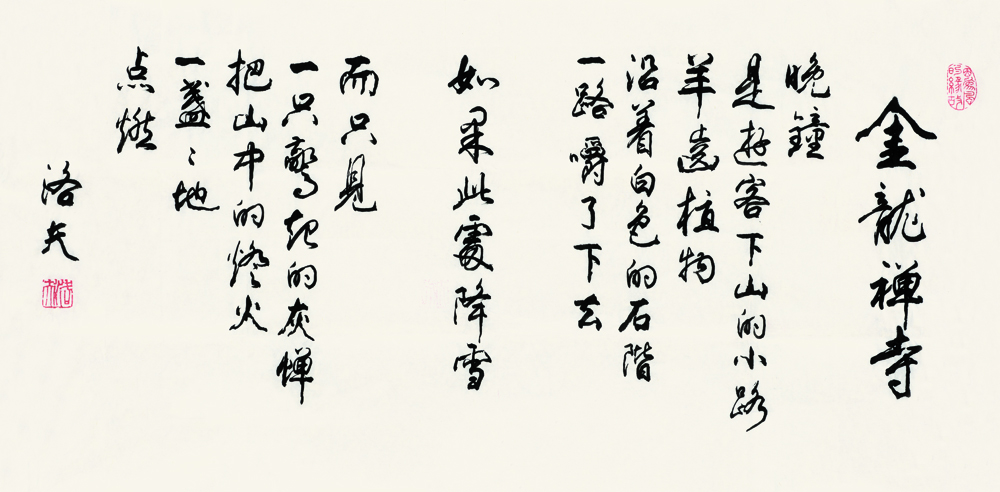 因為風的緣故
金龍禅寺
晚鐘
是遊客下山的小路
羊齒植物
沿着白色的石階
一路嚼了下去
如果此處降雪
而只見
一只驚起的灰蟬
把山中的燈火
一盞〻地
点燃
洛夫